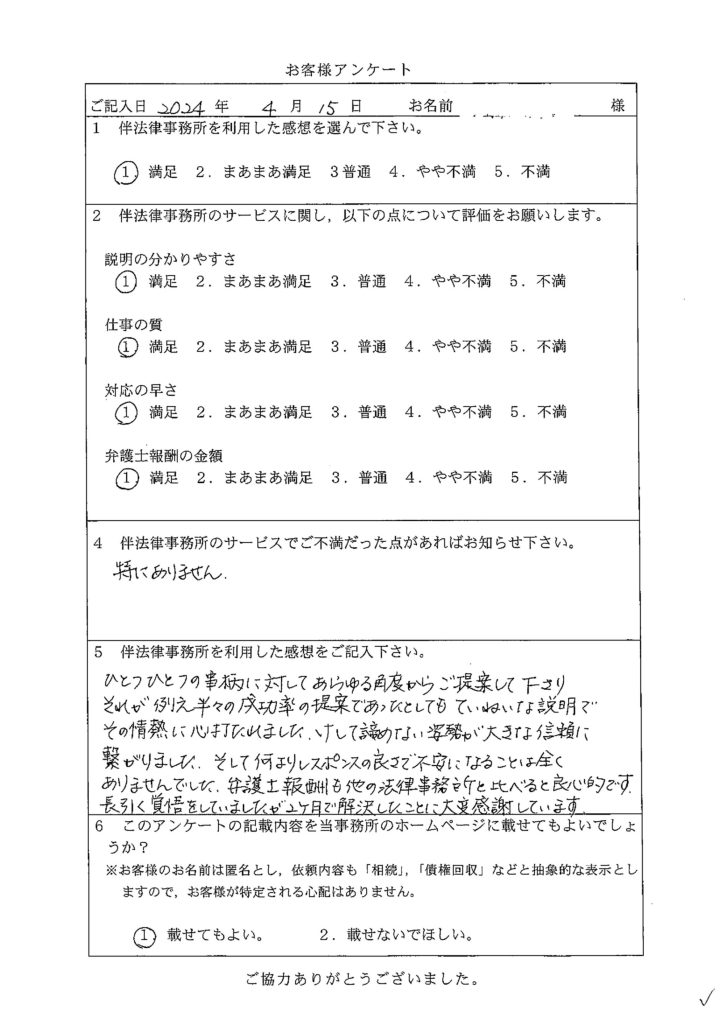 お客様アンケート
ご記入日 2024 年 4 月 15 日 お名前 様
1 伴法律事務所を利用した感想を選んで下さい。
1 満足 2．まあまあ満足 3普通 4．やや不満 5．不満
2 伴法律事務所のサービスに関し，以下の点について評価をお願いします。
説明の分かりやすさ
1 満足 2．まあまあ満足 3．普通 4．やや不満 5．不満
仕事の質
1 満足 2．まあまあ満足 3．普通 4．やや不満 5．不満
対応の早さ
1 満足 2．まあまあ満足 3．普通 4．やや不満 5．不満
弁護士報酬の金額
1 満足 2．まあまあ満足 3．普通 4．やや不満 5．不満
4 伴法律事務所のサービスでご不満だった点があればお知らせ下さい。
特にありません.
5 伴法律事務所を利用した感想をご記入下さい。
ひとつひとつの事柄に対してあらゆる角度からご提案して下さり
それが例え半々の成功率の提案であったとしてもていねいな説明で
その情熱に心打たれました.けして諦めない姿勢が大きな信頼に
繋がりました. そして何よりレスポンスの良さで不安になることは全く
ありませんでした.弁護士報酬も他の法律事務所と比べると良心的です.
長引く覚悟をしていましたが2ヶ月で解決したことに大変感謝しています.
6 このアンケートの記載内容を当事務所のホームページに載せてもよいでしょ
うか？
※お客様のお名前は匿名とし，依頼内容も「相続」，「債権回収」などと抽象的な表示とし
ますので，お客様が特定される心配はありません。
1 載せてもよい。 2．載せないでほしい。
ご協力ありがとうございました。